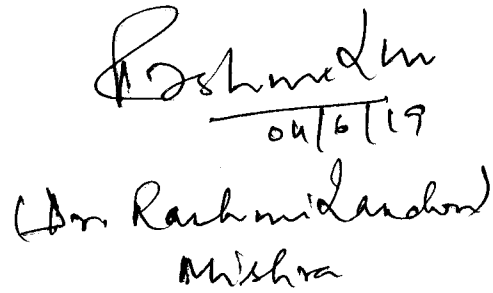 04/6/19
(Dr. Rashmi Tandon)
Mishra